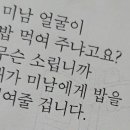 미남 얼굴이
밥 먹여 주냐고요?
무슨 소립니까
제가 미남에게 밥을
먹여줄 겁니다.